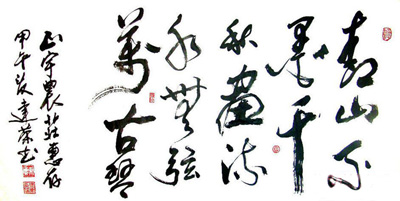 青山不
墨千
秋画流
水无弦
万古琴
正宇农庄惠存
甲午 建荣书